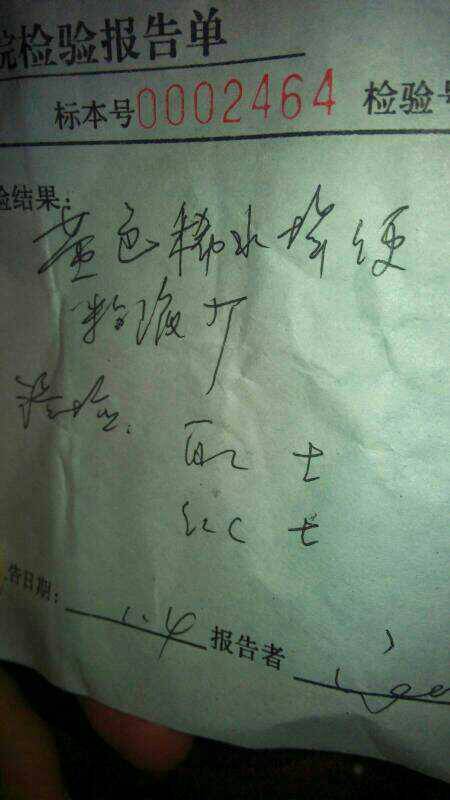 院检验报告单
标本号0002464 检验号
验结果:
黄色稀水样便
粘液 +
镜检:
白C ±
红C ±
告日期: 1.4 报告者